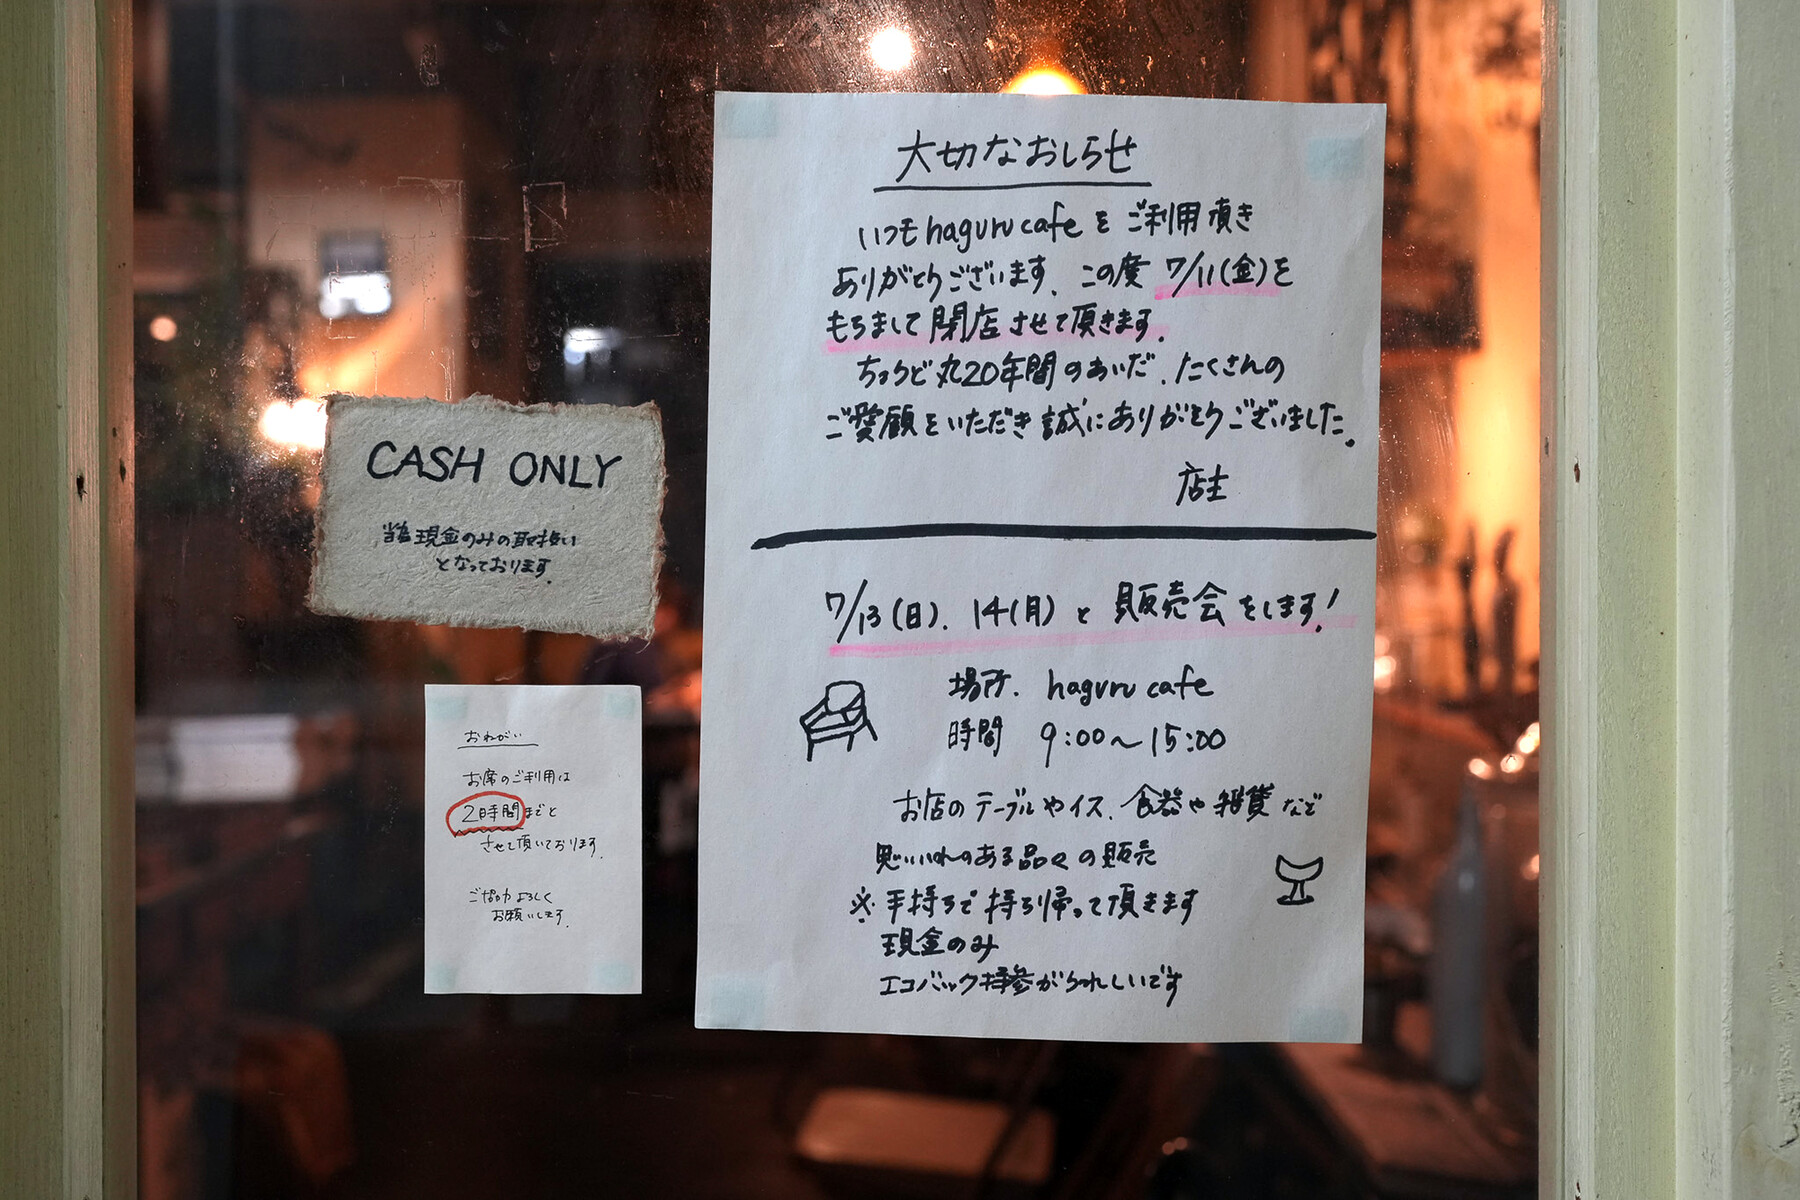 大切なおしらせ
いつもhaguru cafeをご利用頂き
ありがとうございます。この度 7/11(金)を
もちまして閉店させて頂きます。
ちょうど丸20年間のあいだ、たくさんの
ご愛顧をいただき誠にありがとうございました。
店主
7/13(日)、14(月)と販売会をします!
場所. haguru cafe
時間 9:00〜15:00
お店のテーブルやイス、食器や雑貨など
思い入れのある品々の販売
※手持ちで持ち帰って頂きます
現金のみ
エコバック持参がうれしいです
CASH ONLY
当店現金のみの取扱い
となっております。
おねがい
お席のご利用は
2時間までと
させて頂いております。
ご協力よろしく
お願いします。